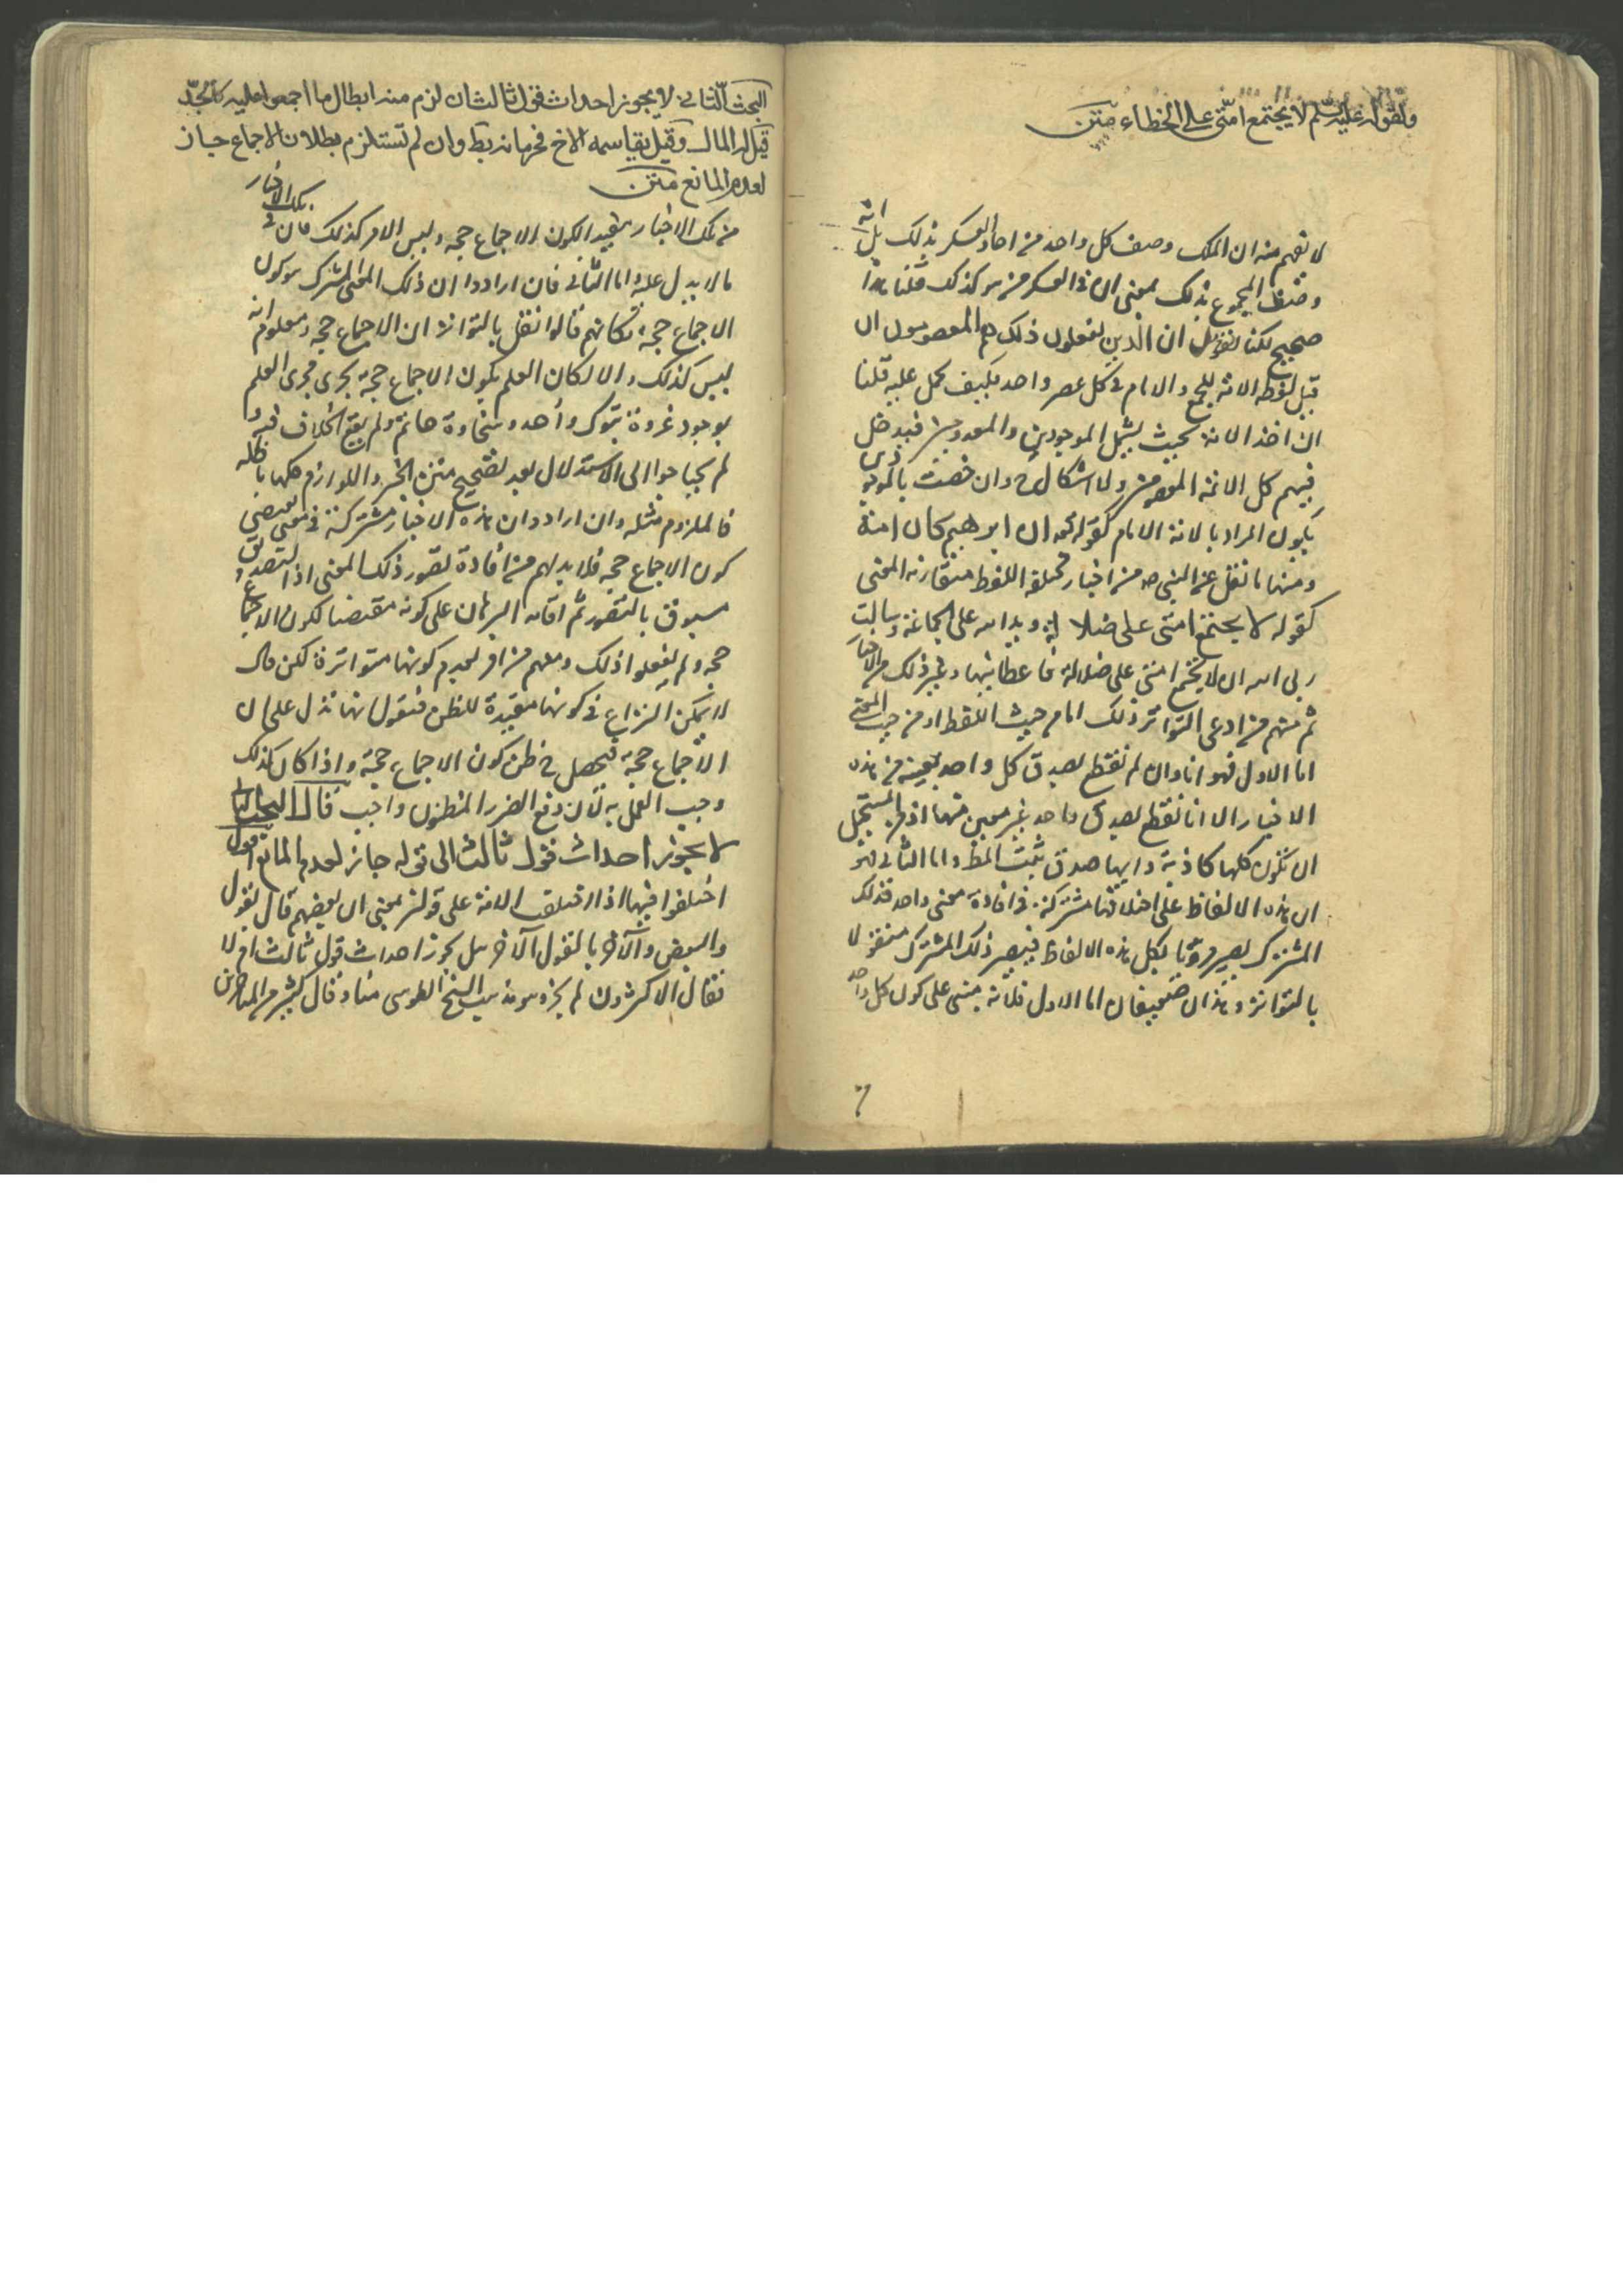 ولقوله عليه السلم لا يجتمع امتى على الخطاء متن
لا نفهم منه ان الملك وصف كل واحد من احاد العسكر بذلك بل انه
وصف المجموع بذلك بمعنى ان فى العسكر من هو كذلك قلنا هذا
صحيح لكنا نقول ان الذين يفعلون ذلك هم المعصومون فان
قيل لفظه الامة للجمع والامام فى كل عصر واحد فكيف يحمل عليه قلنا
ان اخذ الامة بحيث يشمل الموجودين والمعدومين فيدخل
فيهم كل الائمة المعصومين ولا اشكال ح وان خصت بالموجودين
يكون المراد بالامة الامام كقوله تعه ان ابرهيم كان امة
ومنها ما نقل عن النبى ص من اخبار مختلفه اللفظ متقاربه المعنى
كقوله لا يجتمع امتى على ضلالة ويد الله على الجماعة وسالت
ربى الله ان لا يجتمع امتى على ضلالة فاعطانيها وغير ذلك من الاخبار
ثم منهم من ادعى التواتر ذلك اما من حيث اللفظ او من حيث المعنى
اما الاول فهو انا وان لم نقطع بصدق كل واحد بعينه من هذه
الاخبار الا انا نقطع بصدق واحد غير معين منها اذ من المستحيل
ان تكون كلها كاذبة وايها صدق ثبت المط واما الثانى فهو
ان هذه الالفاظ على اختلافها مشتركة فى افادة معنى واحد فذلك
المشترك يصير مرويا بكل هذه الالفاظ فيصير ذلك المشترك منقولا
بالتواتر وهذان ضعيفان اما الاول فلانه مبنى على كون كل واحد
البحث الثانى لا يجوز احداث قول ثالث ان لزم منه ابطال ما اجمعوا عليه كالجد
قيل له المال وقيل يقاسمه الاخ فحرمانه بط وان لم تستلزم بطلان الاجماع جاز
لعدم المانع متن
من تلك الاخبار مفيد الكون الاجماع حجه وليس الامر كذلك فان فى تلك الاخبار
ما لا يدل عليه اما الثانى فان ارادوا ان ذلك المعنى المشترك هو كون
الاجماع حجه فكانهم قالوا نقل بالتواتر ان الاجماع حجه ومعلوم انه
ليس كذلك والا لكان العلم بكون الاجماع حجة يجرى مجرى العلم
بوجود غزوة تبوك واحد وسخاوة حاتم ولم يقع الخلاف فيه و
لم يحتاجوا الى الاستدلال بعد تصحيح متن الخبر واللوازم كلها باطله
فالملزوم مثله وان ارادوا ان هذه الاخبار مشتركة فى معنى يقتضى
كون الاجماع حجه فلابد لهم من افادة تصور ذلك المعنى اذ التصديق
مسبوق بالتصور ثم اقامه البرهان على كونه مقتضيا لكون الاجماع
حجه ولم يفعلوا ذلك ومنهم من اقر بعدم كونها متواترة لكن قال
لا يمكن النزاع فى كونها مفيدة للظن فنقول انها تدل على ان
الاجماع حجة فيحصل ظن كون الاجماع حجة واذا كان كذلك
وجب العمل به لان دفع الضرر المظنون واجب قال البحث الثانى
لا يجوز احداث قول ثالث الى قوله جاز لعدم المانع اقول
اختلفوا فيها اذا اختلف الامة على قولين بمعنى ان بعضهم قال بقول
والبعض الآخر بالقول الآخر هل يجوز احداث قول ثالث ام لا
فقال الاكثرون لم يجز وهو مذهب الشيخ الطوسى منا وقال كثير من المتاخرين